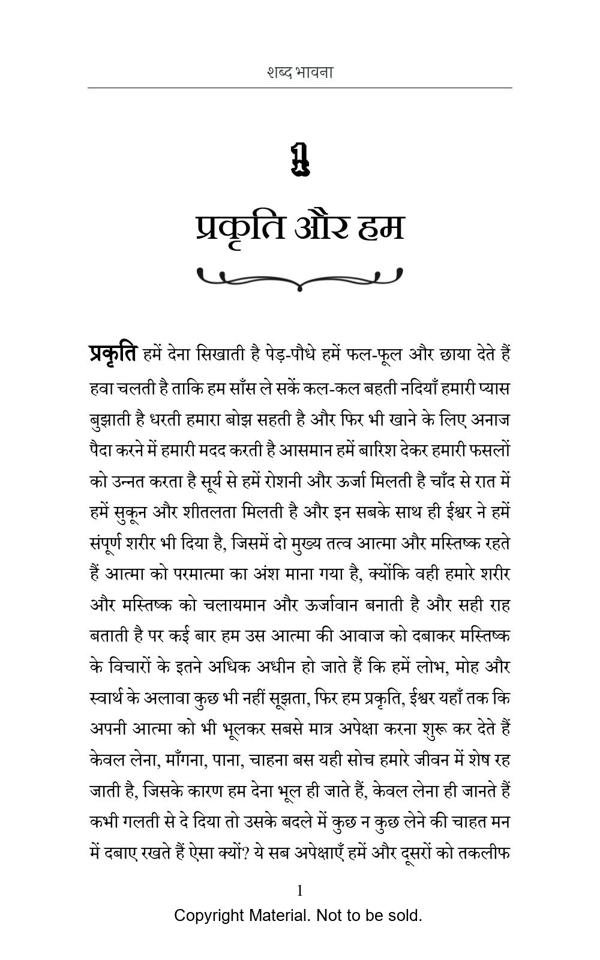 शब्द भावना
1
प्रकृति और हम
प्रकृति हमें देना सिखाती है पेड़-पौधे हमें फल-फूल और छाया देते हैं
हवा चलती है ताकि हम साँस ले सकें कल-कल बहती नदियाँ हमारी प्यास
बुझाती है धरती हमारा बोझ सहती है और फिर भी खाने के लिए अनाज
पैदा करने में हमारी मदद करती है आसमान हमें बारिश देकर हमारी फसलों
को उन्नत करता है सूर्य से हमें रोशनी और ऊर्जा मिलती है चाँद से रात में
हमें सुकून और शीतलता मिलती है और इन सबके साथ ही ईश्वर ने हमें
संपूर्ण शरीर भी दिया है, जिसमें दो मुख्य तत्व आत्मा और मस्तिष्क रहते
हैं आत्मा को परमात्मा का अंश माना गया है, क्योंकि वही हमारे शरीर
और मस्तिष्क को चलायमान और ऊर्जावान बनाती है और सही राह
बताती है पर कई बार हम उस आत्मा की आवाज को दबाकर मस्तिष्क
के विचारों के इतने अधिक अधीन हो जाते हैं कि हमें लोभ, मोह और
स्वार्थ के अलावा कुछ भी नहीं सूझता, फिर हम प्रकृति, ईश्वर यहाँ तक कि
अपनी आत्मा को भी भूलकर सबसे मात्र अपेक्षा करना शुरू कर देते हैं
केवल लेना, माँगना, पाना, चाहना बस यही सोच हमारे जीवन में शेष रह
जाती है, जिसके कारण हम देना भूल ही जाते हैं, केवल लेना ही जानते हैं
कभी गलती से दे दिया तो उसके बदले में कुछ न कुछ लेने की चाहत मन
में दबाए रखते हैं ऐसा क्यों? ये सब अपेक्षाएँ हमें और दूसरों को तकलीफ
1
Copyright Material. Not to be sold.